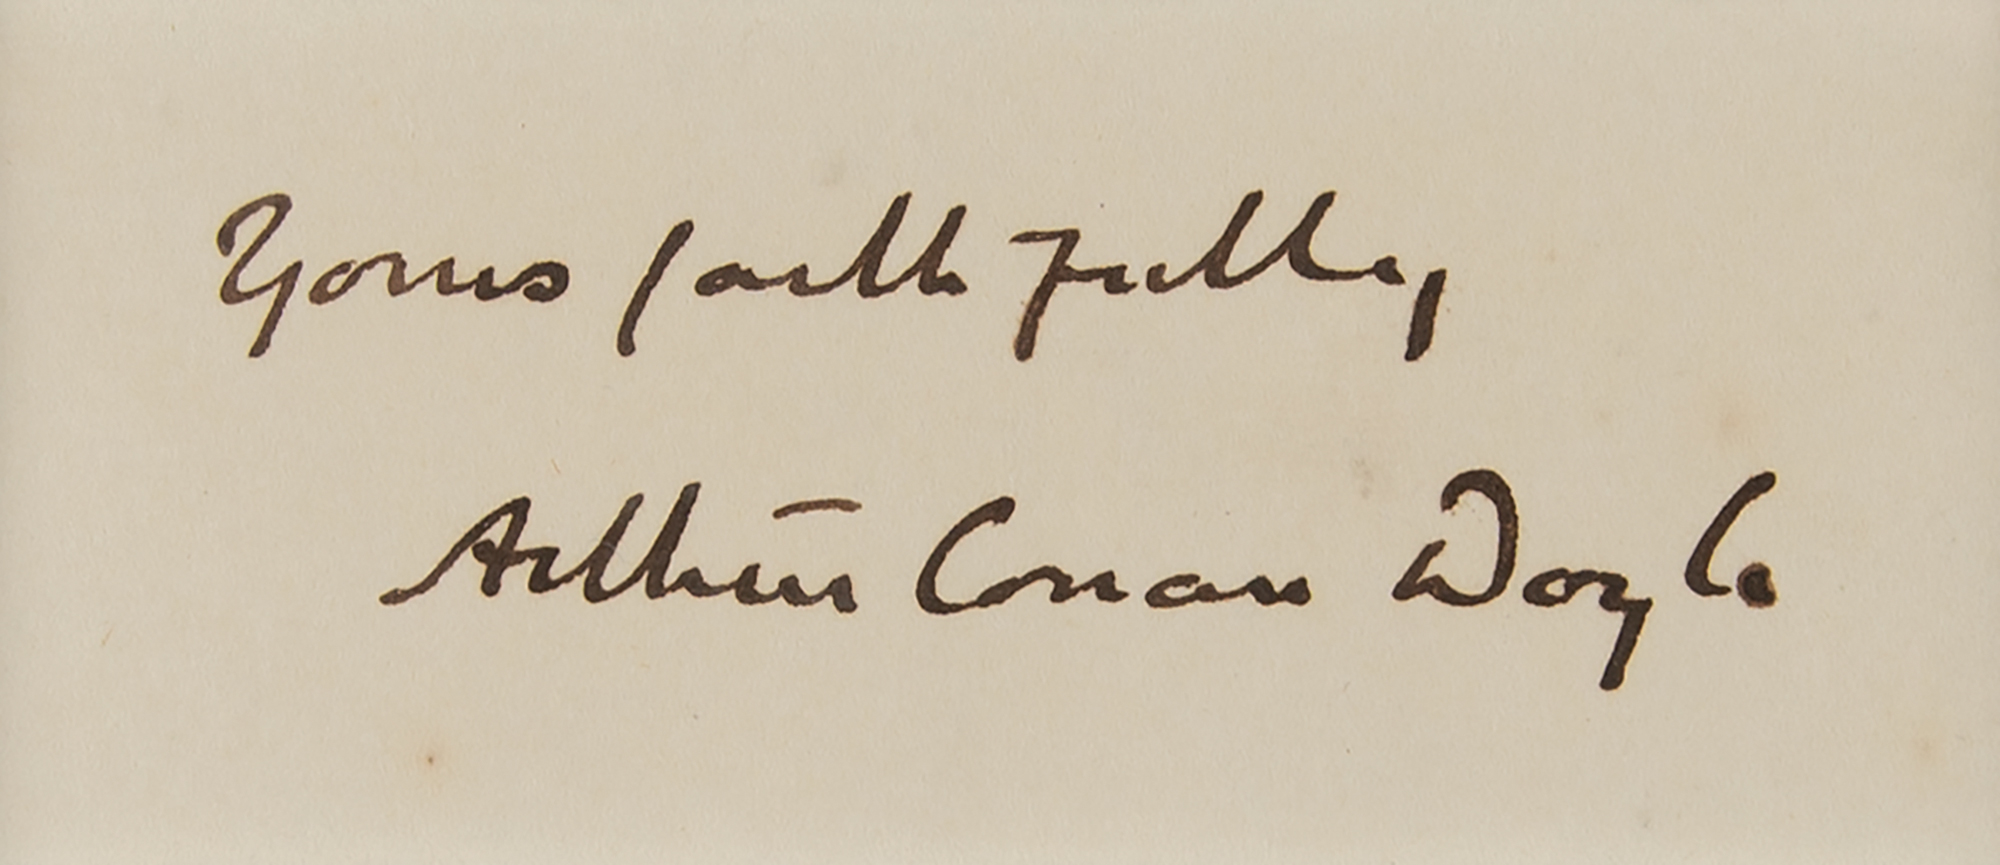 Yours faithfully
Arthur Conan Doyle